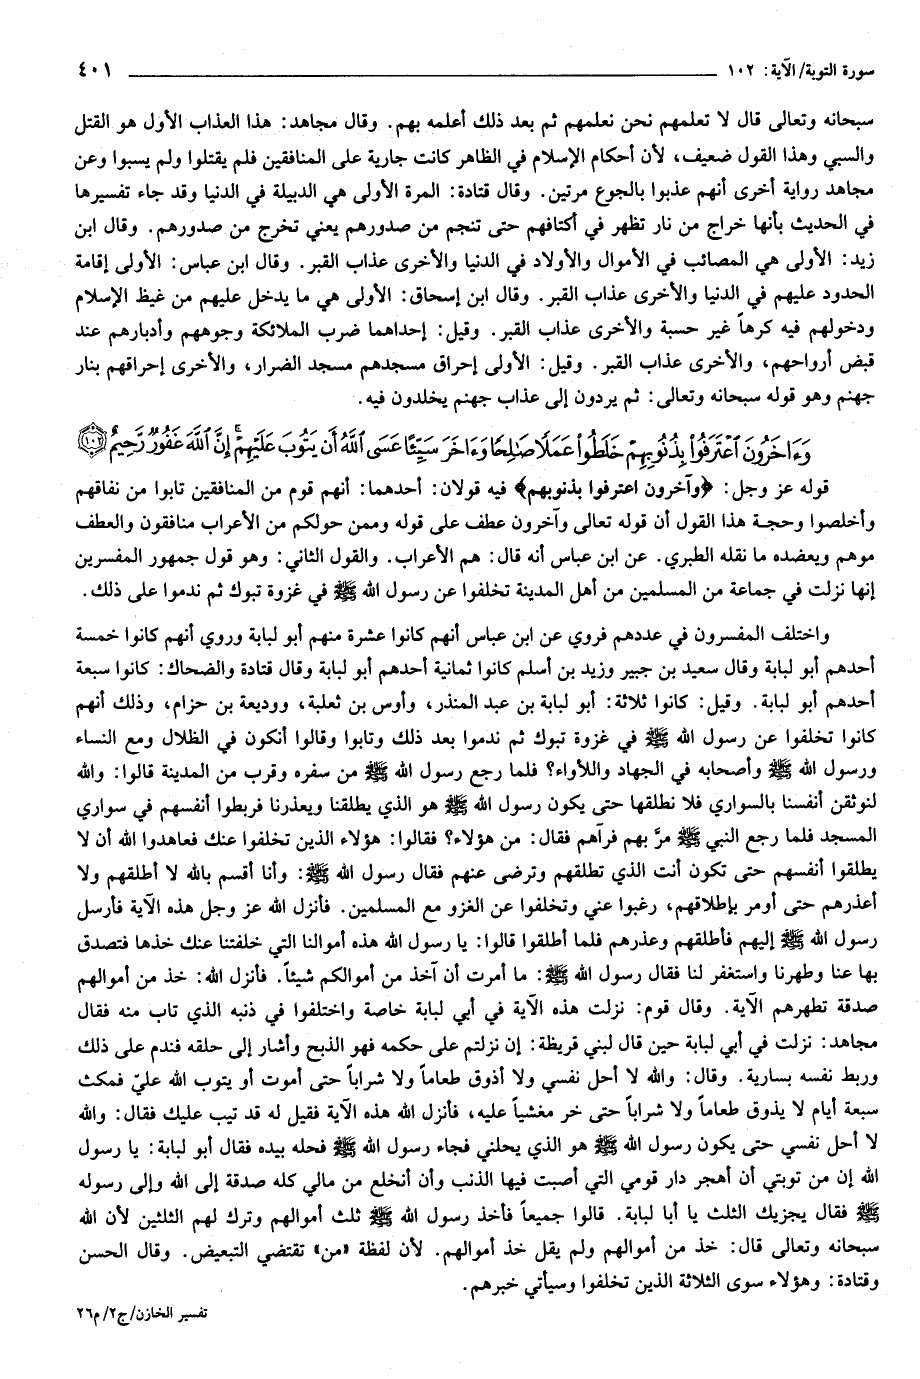 سورة التوبة/ الآية: ١٠٢
٤٠١
سبحانه وتعالى قال لا تعلمهم نحن نعلمهم ثم بعد ذلك أعلمه بهم. وقال مجاهد: هذا العذاب الأول هو القتل
والسبي وهذا القول ضعيف، لأن أحكام الإسلام في الظاهر كانت جارية على المنافقين فلم يقتلوا ولم يسبوا وعن
مجاهد رواية أخرى أنهم عذبوا بالجوع مرتين. وقال قتادة: المرة الأولى هي الدبيلة في الدنيا وقد جاء تفسيرها
في الحديث بأنها خراج من نار تظهر في أكتافهم حتى تنجم من صدورهم يعني تخرج من صدورهم. وقال ابن
زيد: الأولى هي المصائب في الأموال والأولاد في الدنيا والأخرى عذاب القبر. وقال ابن عباس: الأولى إقامة
الحدود عليهم في الدنيا والأخرى عذاب القبر. وقال ابن إسحاق: الأولى هي ما يدخل عليهم من غيظ الإسلام
ودخولهم فيه كرهاً غير حسبة والأخرى عذاب القبر. وقيل: إحداهما ضرب الملائكة وجوههم وأدبارهم عند
قبض أرواحهم، والأخرى عذاب القبر. وقيل: الأولى إحراق مسجدهم مسجد الضرار، والأخرى إحراقهم بنار
جهنم وهو قوله سبحانه وتعالى: ثم يردون إلى عذاب جهنم يخلدون فيه.
وَءَاخَرُونَ ٱعۡتَرَفُواْ بِذُنُوبِهِمۡ خَلَطُواْ عَمَلٗا صَٰلِحٗا وَءَاخَرَ سَيِّئًا عَسَى ٱللَّهُ أَن يَتُوبَ عَلَيۡهِمۡۚ إِنَّ ٱللَّهَ غَفُورٞ رَّحِيمٌ ١٠٢
قوله عز وجل: ﴿وآخرون اعترفوا بذنوبهم﴾ فيه قولان: أحدهما: أنهم قوم من المنافقين تابوا من نفاقهم
وأخلصوا وحجة هذا القول أن قوله تعالى وآخرون عطف على قوله وممن حولكم من الأعراب منافقون والعطف
موهم ويعضده ما نقله الطبري. عن ابن عباس أنه قال: هم الأعراب. والقول الثاني: وهو قول جمهور المفسرين
إنها نزلت في جماعة من المسلمين من أهل المدينة تخلفوا عن رسول الله ﷺ في غزوة تبوك ثم ندموا على ذلك.
واختلف المفسرون في عددهم فروي عن ابن عباس أنهم كانوا عشرة منهم أبو لبابة وروي أنهم كانوا خمسة
أحدهم أبو لبابة وقال سعيد بن جبير وزيد بن أسلم كانوا ثمانية أحدهم أبو لبابة وقال قتادة والضحاك: كانوا سبعة
أحدهم أبو لبابة. وقيل: كانوا ثلاثة: أبو لبابة بن عبد المنذر، وأوس بن ثعلبة، ووديعة بن حزام، وذلك أنهم
كانوا تخلفوا عن رسول الله ﷺ في غزوة تبوك ثم ندموا بعد ذلك وتابوا وقالوا أنكون في الظلال ومع النساء
ورسول الله ﷺ وأصحابه في الجهاد واللأواء؟ فلما رجع رسول الله ﷺ من سفره وقرب من المدينة قالوا: والله
لنوثقن أنفسنا بالسواري فلا نطلقها حتى يكون رسول الله ﷺ هو الذي يطلقنا ويعذرنا فربطوا أنفسهم في سواري
المسجد فلما رجع النبي ﷺ مرَّ بهم فرآهم فقال: من هؤلاء؟ فقالوا: هؤلاء الذين تخلفوا عنك فعاهدوا الله أن لا
يطلقوا أنفسهم حتى تكون أنت الذي تطلقهم وترضى عنهم فقال رسول الله ﷺ: وأنا أقسم بالله لا أطلقهم ولا
أعذرهم حتى أومر بإطلاقهم، رغبوا عني وتخلفوا عن الغزو مع المسلمين. فأنزل الله عز وجل هذه الآية فأرسل
رسول الله ﷺ إليهم فأطلقهم وعذرهم فلما أطلقوا قالوا: يا رسول الله هذه أموالنا التي خلفتنا عنك خذها فتصدق
بها عنا وطهرنا واستغفر لنا فقال رسول الله ﷺ: ما أمرت أن آخذ من أموالكم شيئاً. فأنزل الله: خذ من أموالهم
صدقة تطهرهم الآية. وقال قوم: نزلت هذه الآية في أبي لبابة خاصة واختلفوا في ذنبه الذي تاب منه فقال
مجاهد: نزلت في أبي لبابة حين قال لبني قريظة: إن نزلتم على حكمه فهو الذبح وأشار إلى حلقه فندم على ذلك
وربط نفسه بسارية. وقال: والله لا أحل نفسي ولا أذوق طعاماً ولا شراباً حتى أموت أو يتوب الله عليّ فمكث
سبعة أيام لا يذوق طعاماً ولا شراباً حتى خر مغشياً عليه، فأنزل الله هذه الآية فقيل له قد تيب عليك فقال: والله
لا أحل نفسي حتى يكون رسول الله ﷺ هو الذي يحلني فجاء رسول الله ﷺ فحله بيده فقال أبو لبابة: يا رسول
الله إن من توبتي أن أهجر دار قومي التي أصبت فيها الذنب وأن أنخلع من مالي كله صدقة إلى الله وإلى رسوله
ﷺ فقال يجزيك الثلث يا أبا لبابة. قالوا جميعاً فأخذ رسول الله ﷺ ثلث أموالهم وترك لهم الثلثين لأن الله
سبحانه وتعالى قال: خذ من أموالهم ولم يقل خذ أموالهم. لأن لفظة «من» تقتضي التبعيض. وقال الحسن
وقتادة: وهؤلاء سوى الثلاثة الذين تخلفوا وسيأتي خبرهم.
تفسير الخازن/ ج٢/ م٢٦